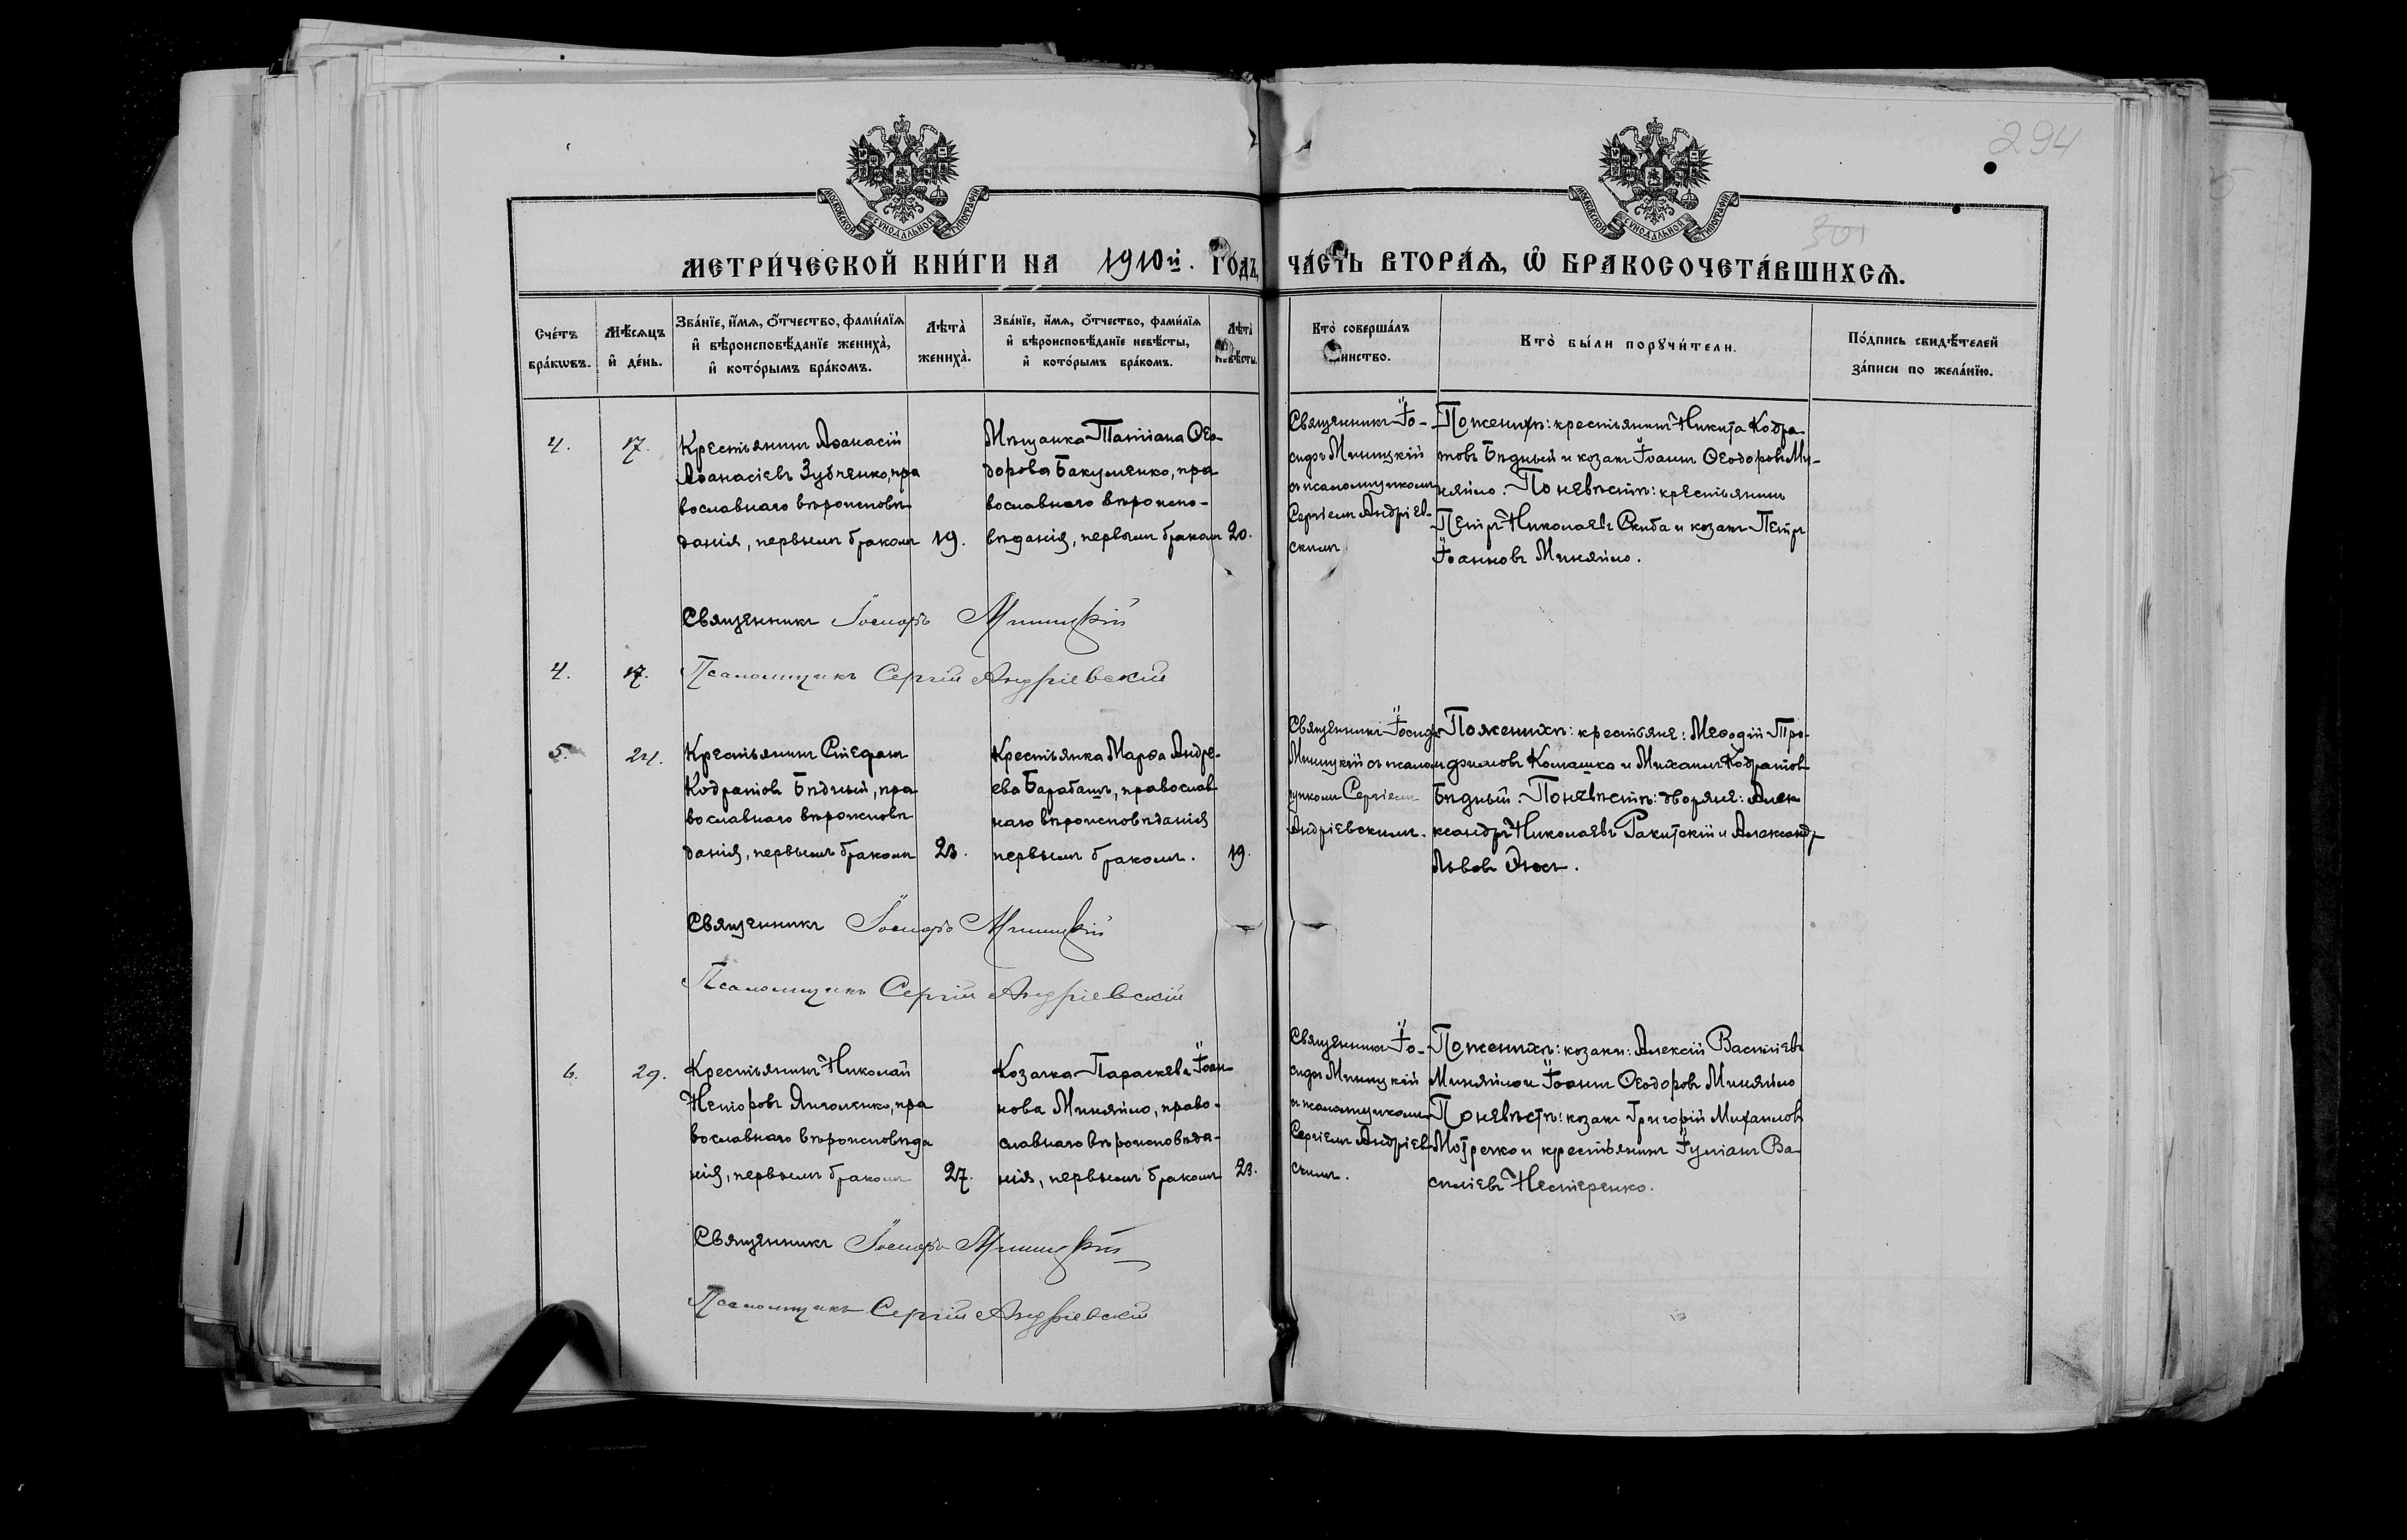 294
301
МОСКОВСКОЙ СѴНОДАЛЬНОЙ ТИПОГРАФІИ
МОСКОВСКОЙ СѴНОДАЛЬНОЙ ТИПОГРАФІИ
МЕТРИ́ЧЕСКОЙ КНИ́ГИ НА 1910й. ГО́ДЪ, ЧА́СТЬ ВТОРА́Ѧ, Ѡ҆ БРАКОСОЧЕТА́ВШИХСѦ.
Сче́тъ бра́кѡвъ.
Мѣ́сѧцъ и҆ де́нь.
Зва́нїе, и҆́мѧ, ѻ҆́тчество, фами́лїѧ
и҆ вѣроисповѣ́данїе жениха̀,
и҆ кото́рымъ бра́комъ.
Лѣта̀ жениха̀.
Зва́нїе, и҆́мѧ, ѻ҆́тчество, фами́лїѧ
и҆ вѣроисповѣ́данїе невѣ́сты,
и҆ кото́рымъ бра́комъ.
Лѣта̀ невѣ́сты.
Кто̀ соверша́лъ
таинство.
Кто̀ бы́ли порꙋчи́тели.
По́дпись свидѣ́телей
за́писи по жела́нїю.
4.
17.
Крестьянинъ Аѳанасій
Аѳанасіевъ Зубченко, пра
вославнаго вѣроисповѣ
данія, первымъ бракомъ
19.
Мѣщанка Татіана Ѳео
дорова Бакуменко, пра
вославнаго вѣроиспо-
вѣданія, первымъ бракомъ
20.
Священникъ Іо-
сифъ Миницкій
съ псаломщикомъ
Сергіемъ Андріев
скимъ
По женихѣ: крестьянинъ Никита Кодра
товъ Бѣдный и козакъ Іоаннъ Ѳеодоровъ Ми-
няйло. По невѣстѣ: крестьянинъ
Петръ Николаевъ Скиба и козакъ Петръ
Іоанновъ Миняйло.
Священникъ Іосифъ Миницкій
4.
17.
Псаломщикъ Сергій Андріевскій
5.
24.
Крестьянинъ Стефанъ
Кодратовъ Бѣдный, пра
вославнаго вѣроисповѣ
данія, первымъ бракомъ
23.
Крестьянка Марѳа Андре-
ева Барабашъ, православ
наго вѣроисповѣданія
первымъ бракомъ.
19.
Священникъ Іосифъ
Миницкій съ псалом
щикомъ Сергіемъ
Андріевскимъ.
По женихѣ: крестьяне: Меѳодій Тро-
фимовъ Комашко и Михаилъ Кодратовъ
Бѣдный. По невѣстѣ: дворяне: Алек
ксандръ Николаевъ Ракитскій и Александръ
Львовъ
Священникъ Іосифъ Миницкій
Псаломщикъ Сергій Андріевскій
6.
29.
Крестьянинъ Николай
Янголенко, пра
вославнаго вѣроисповѣда
нія, первымъ бракомъ
27.
Козачка Параскева Іоан
нова Миняйло, право-
славнаго вѣроисповѣда-
нія, первымъ бракомъ
23.
Священникъ Іо-
сифъ Миницкій
съ псаломщикомъ
Сергіемъ Андріев
скимъ.
По женихѣ: козаки: Алексій Василіевъ
Миняйло и Іоаннъ Ѳеодоровъ Миняйло
По невѣстѣ: козакъ Григорій Михаиловъ
Мотренко и крестьянинъ Іуліанъ Ва
силіевъ Нестеренко.
Священникъ Іосифъ Миницкій
Псаломщикъ Сергій Андріевскій